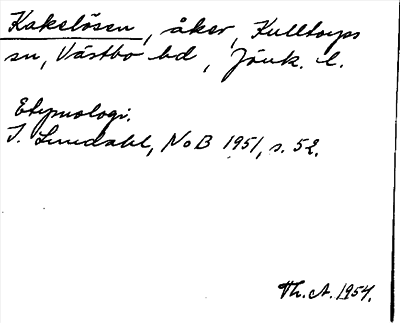 Kakelösen, åker, Kulltorps
sn, Västbo hd, Jönk. l.
Etymologi.
I. Lundahl, NoB 1951, s. 52.
Th. A. 1954.